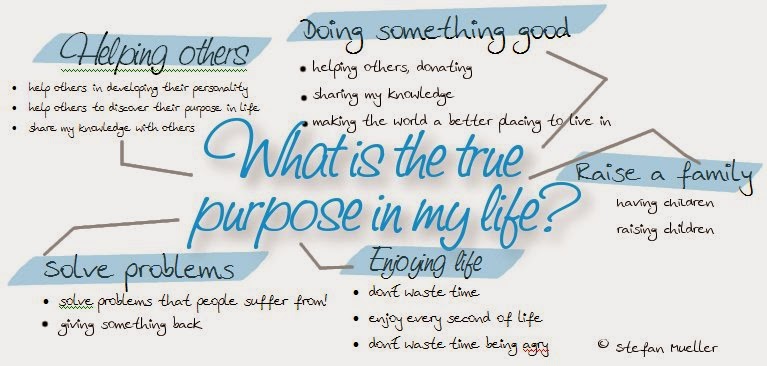 Helping others
• help others in developing their personality
• help others to discover their purpose in life
• share my knowledge with others
Doing something good
• helping others, donating
• sharing my knowledge
• making the world a better placing to live in
What is the true
purpose in my life?
Raise a family
having children
raising children
Solve problems
• solve problems that people suffer from!
• giving something back
Enjoying life
• don't waste time
• enjoy every second of life
• don't waste time being agry
© Stefan Mueller